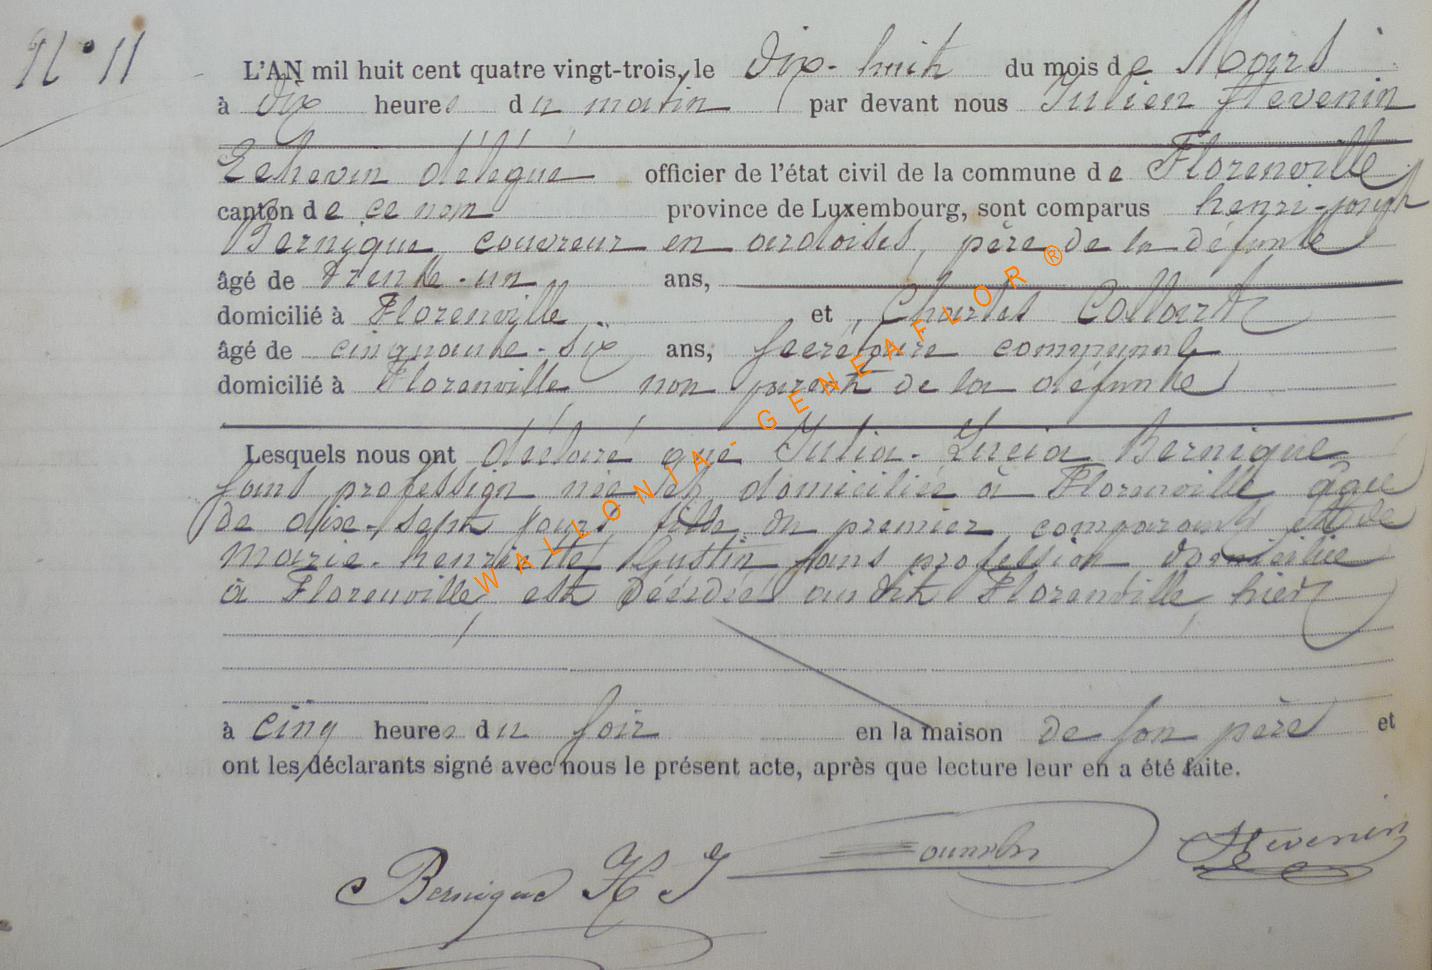 N° 11
L'AN mil huit cent quatre vingt-trois, le dix-huit du mois de Mars
à dix heures du matin par devant nous Julien Stevenin
Echevin délégué officier de l'état civil de la commune de Florenville
canton de ce nom province de Luxembourg, sont comparus henri-joseph
Bernique couvreur en ardoises, père de la défunte
âgé de trente-un ans,
domicilié à Florenville et Charles Collart
âgé de cinquante-six ans, secrétaire communal
domicilié à Florenville non parent de la défunte
Lesquels nous ont déclaré que Julia-Lucia Bernique
sans profession née et domiciliée à Florenville âgée
de dix-sept jours fille du premier comparant et de
Marie-henriette Gustin sans profession domiciliée
à Florenville, est décédée audit Florenville, hier
à cinq heures du soir en la maison de son père et
ont les déclarants signé avec nous le présent acte, après que lecture leur en a été faite.
Bernique H J Stevenin
WALLONIA - GENEAFLOR ®